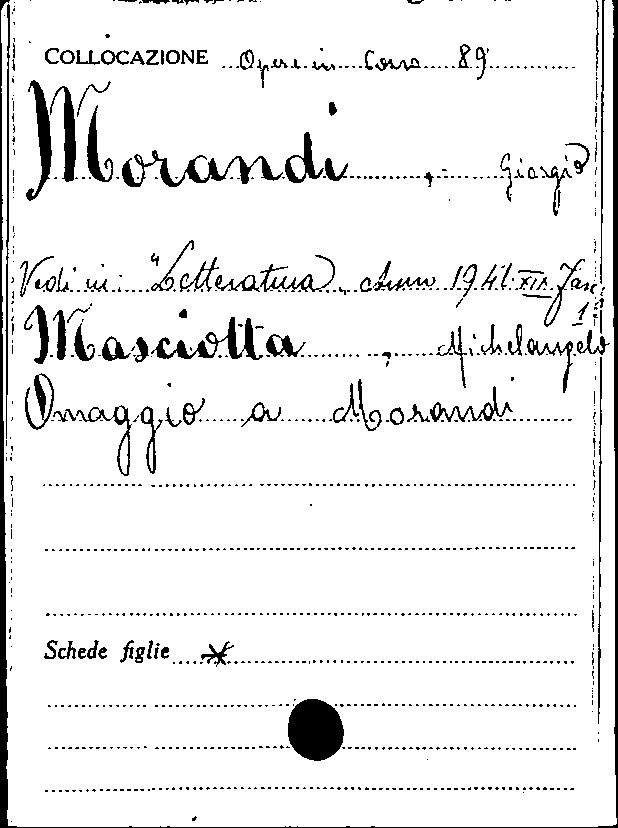 COLLOCAZIONE Opere in Corso 89
Morandi, Giorgio
Vedi in: "Letteratura", Anno 1941. XIX Fasc.
1º
Masciotta, Michelangelo
Omaggio a Morandi
Schede figlie